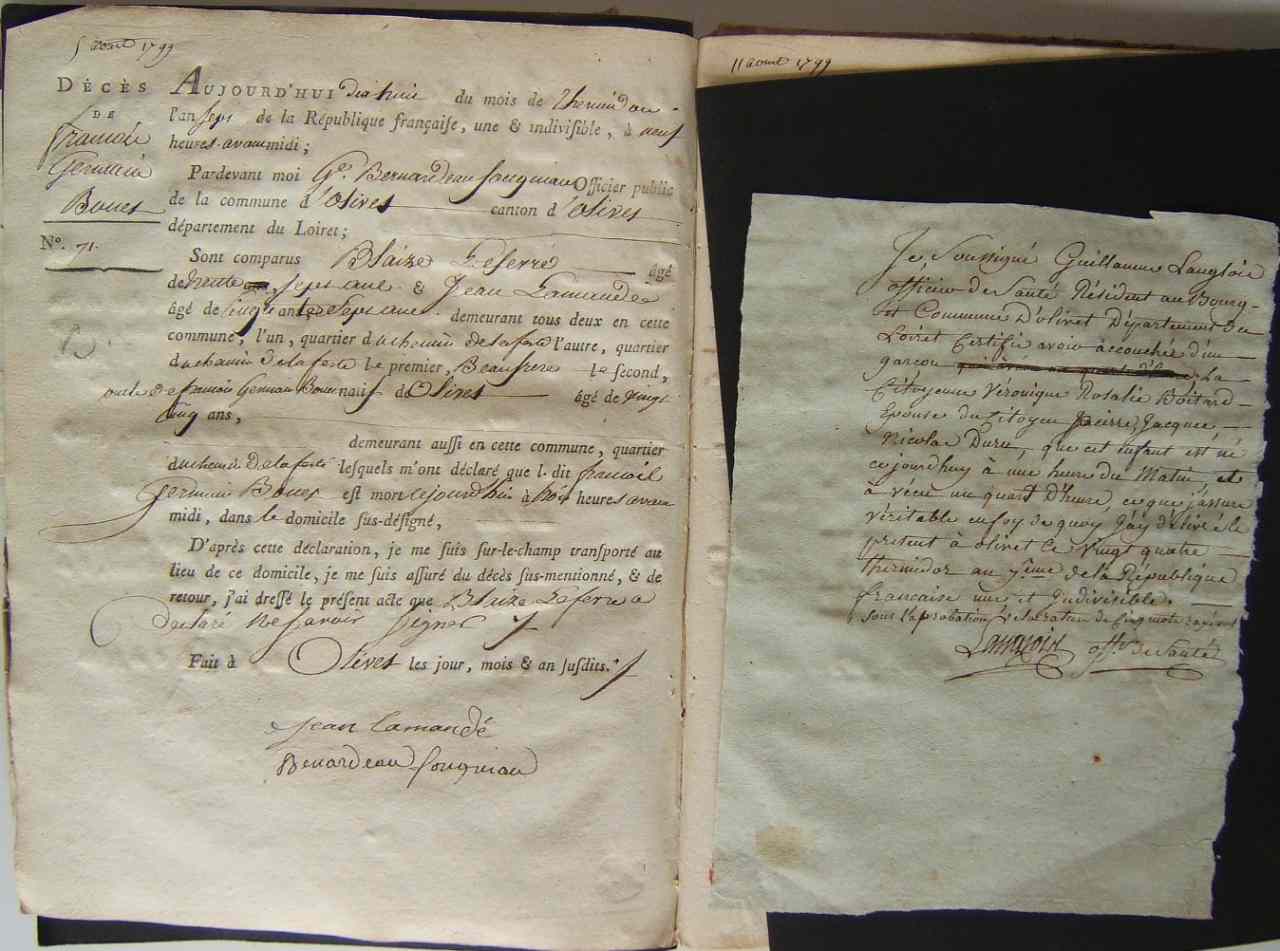 5 aout 1799
DÉCÈS
DE
françois
Germain
Bouet
N°. 71.
AUJOURD'HUI dix huit du mois de Thermidor
l'an sept de la République françaife, une & indivifible, à neuf
heures avant midi;
Pardevant moi Officier public
de la commune d'Olivet canton d'Olivet
département du Loiret;
Sont comparus Blaize Deferre âgé
de trente sept ans & Jean Lamandé
âgé de Cinquante Sept ans demeurant tous deux en cette
commune, l'un, quartier du chemin de la ferté l'autre, quartier
du chemin de la ferté le premier, Beaufrere le second,
oncle de françois Germain Bouet natif d'Olivet âgé de Vingt
Cinq ans,
demeurant auffi en cette commune, quartier
du chemin De la ferté lefquels m'ont déclaré que l. dit françois
Germain Bouet eft mort cejourdhui à trois heures avant
midi, dans le domicile fus-défigné,
D'après cette déclaration, je me fuis fur-le-champ tranfporté au
lieu de ce domicile, je me fuis affuré du décès fus-mentionné, & de
retour, j'ai dreffé le préfent acte que Blaize Deferre a
declaré Ne Savoir Signer
Fait à Olivet les jour, mois & an fufdits.
Jean Lamandé
11 aout 1799
Je Soussigné Guillaume Langlois
officier de Santé Résident au Bourg
et Commune D'olivet Département Du
Loiret Certifie avoir accouchée d'un
garçon La
Citoyenne Véronique Rosalie Boitard
Epouse du Citoyen pierre Jacque
Nicolas Duru, que cet enfant est né
cejourdhuy à une heure du Matin, et
à vécu un quart d'heure, ce que j'assure
véritable en foy de quoy J'ay délivré le
present à olivet ce vingt quatre
thermidor an 7ème de la République
francaise une et Indivisible.
sous l'aprobation de la rature de Cinq mots rayés
Langlois off. De Santé